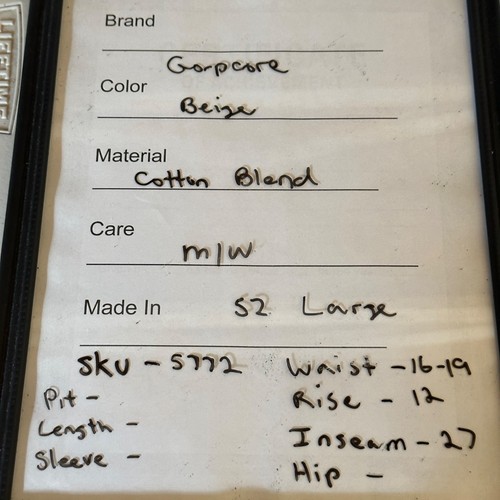 LIFETIME
Brand
Gorpcore
Color
Beige
Material
Cotton Blend
Care
m/w
Made In SZ Large
SKU - 5772 Waist - 16-19
Pit - Rise - 12
Length - Inseam - 27
Sleeve - Hip -